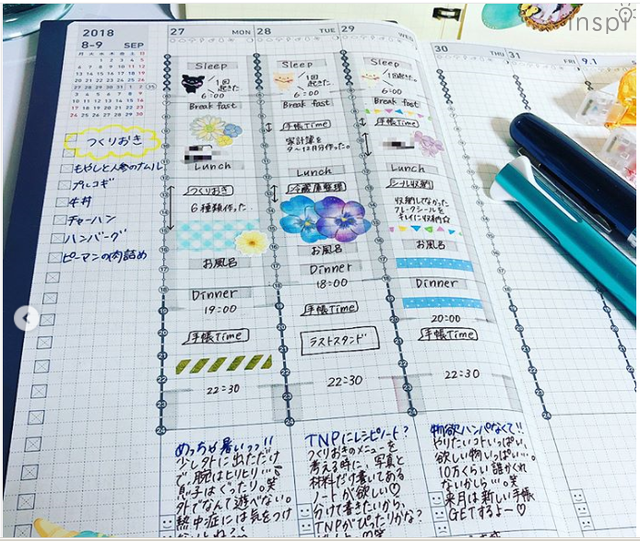 inspi
2018
8-9 SEP
27 MON
28 TUE
29
30
31
9.1
THU
FRI
つくりおき
もやしと人参のナムル
プルコギ
チャーハン
ハンバーグ
ピーマンの肉詰め
Sleep
1回
起きた
6:00
Break fast
Lunch
つくりおき
6種類作った。
お風呂
Dinner
19:00
手帳Time
22:30
Sleep
1回
起きた
6:00
Break fast
手帳Time
家計簿を
9~12月分作った。
Lunch
冷蔵庫整理
お風呂
Dinner
18:00
手帳Time
ラストスタンド
22:30
Sleep
1回
起きた
6:00
Break fast
手帳Time
Lunch
シール収納
収納してなかった
フレークシールを
キレイに収納☆
お風呂
Dinner
20:00
手帳Time
22:30
めっちゃ暑いっっ!!
少し外に出ただけ
で、腕はヒリヒリ…。
息子はぐったり。笑
外でなんて遊べない。
熱中症には気をつけ
TNPにレシピノート?
つくりおきのメニューを
考える時に、写真と
材料だけ書いてある
ノートが欲しい♡
分けて書きたいから、
TNPがぴったりかな?
物欲ハンパなくて!!
やりたいコトいっぱい、
欲しい物いっぱい…。
10万くらい誰かくれ
ないかしら…。笑
来月は新しい手帳
GETするよー♡